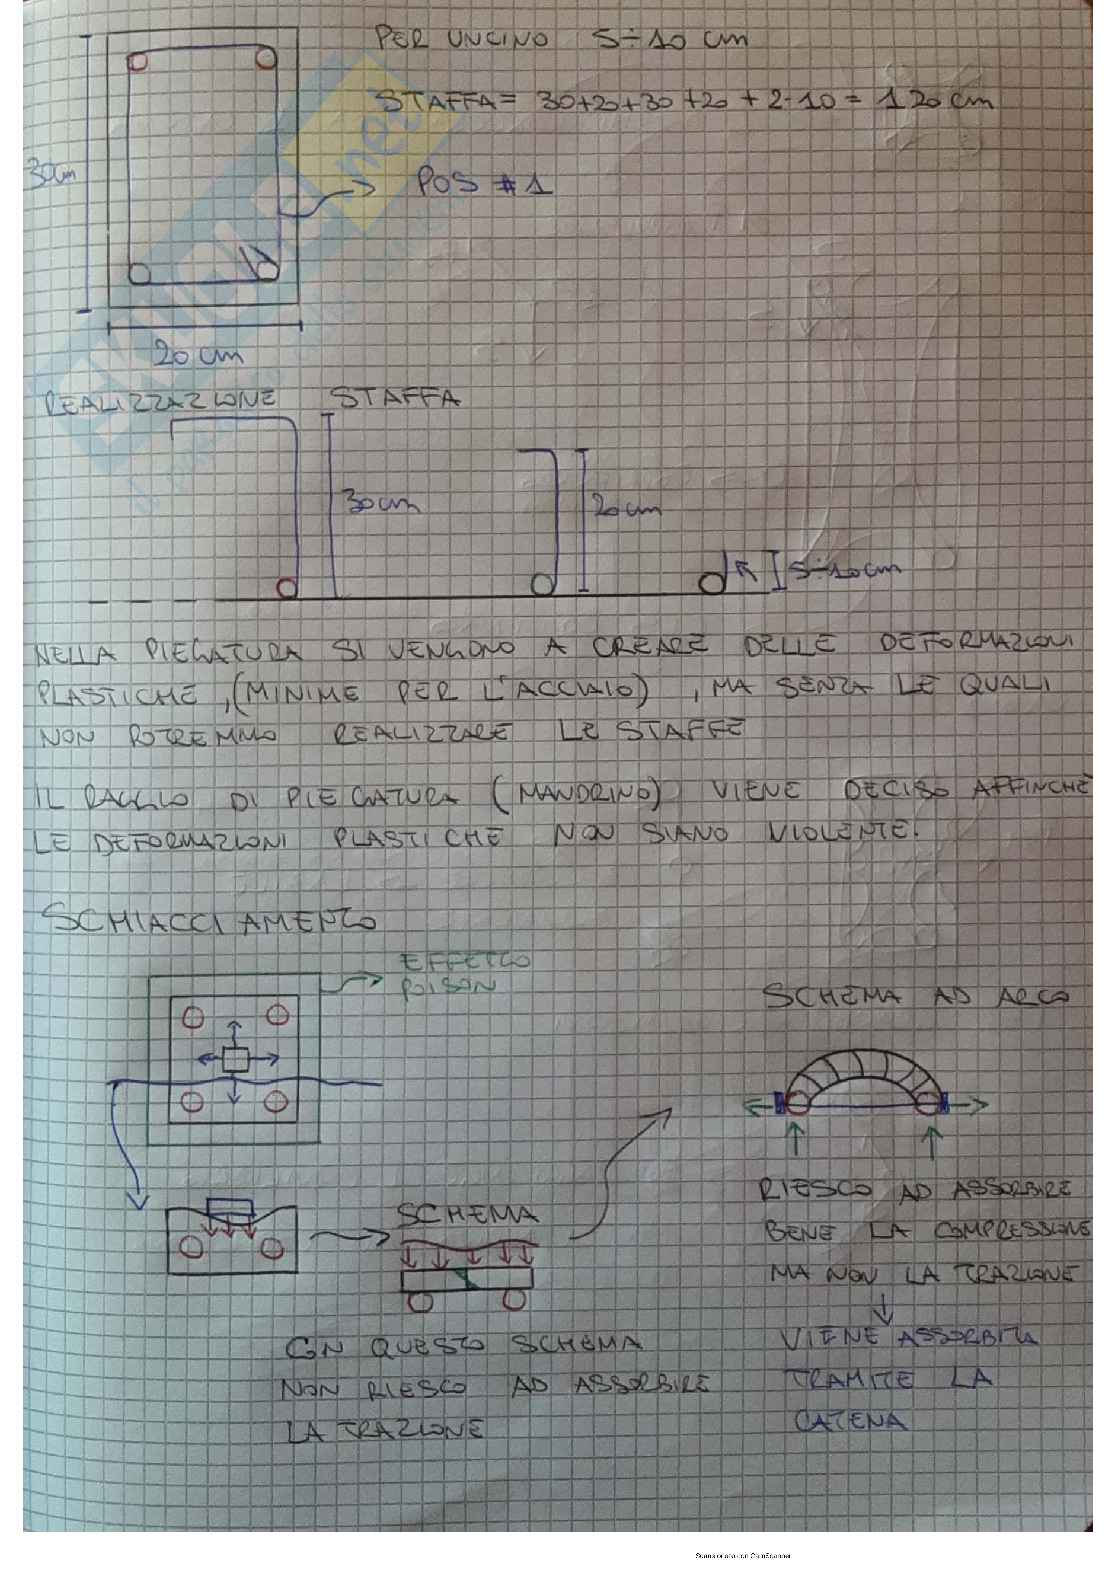 PER UNCINO 5÷10 cm
STAFFA = 30+20+30+20+2·10 = 120 cm
30cm
POS #1
20 cm
REALIZZAZIONE STAFFA
30cm
20cm
5÷10cm
NELLA PIEGATURA SI VENGONO A CREARE DELLE DEFORMAZIONI
PLASTICHE, (MINIME PER L'ACCIAIO), MA SENZA LE QUALI
NON POTREMMO REALIZZARE LE STAFFE
IL RAGGIO DI PIEGATURA (MANDRINO) VIENE DECISO AFFINCHÈ
LE DEFORMAZIONI PLASTICHE NON SIANO VIOLENTE.
SCHIACCIAMENTO
EFFETTO
POISON
SCHEMA AD ARCO
SCHEMA
RIESCO AD ASSORBIRE
BENE LA COMPRESSIONE
MA NON LA TRAZIONE
VIENE ASSORBITA
TRAMITE LA
CATENA
CON QUESTO SCHEMA
NON RIESCO AD ASSORBIRE
LA TRAZIONE
Scansionato con CamScanner